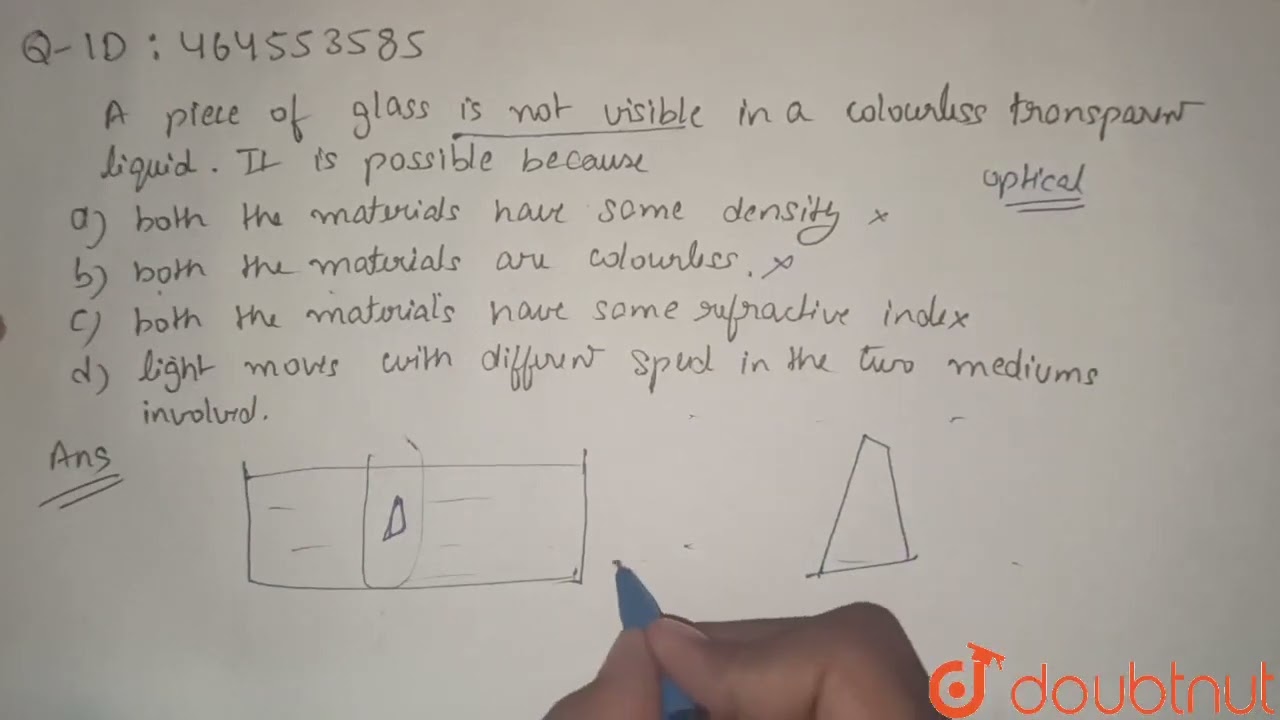 Q-ID : 464553585
A piece of glass is not visible in a colourless transparent
liquid. It is possible because
optical
a) both the materials have same density ×
b) both the materials are colourless. ×
c) both the materials have same refractive index
d) light moves with different speed in the two mediums
involved.
Ans
doubtnut